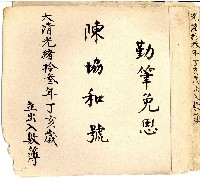 勤筆免思
陳協和號
大清光緒拾叁年丁亥歲
立出入數簿